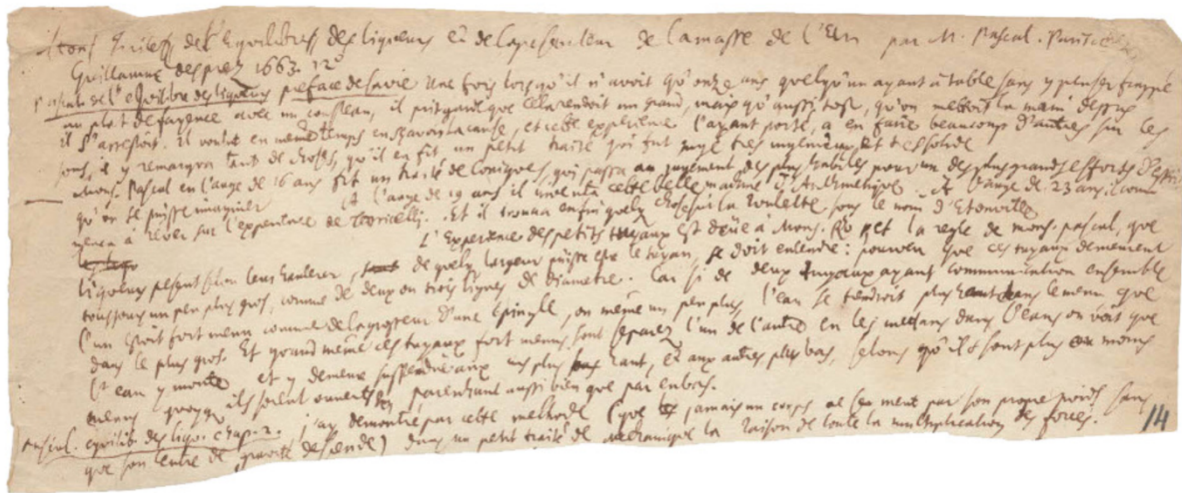 des Equilibres des liqueurs et de la pesanteur de la masse de l'Air par M. Pascal. Paris
Guillaume desprez 1663. 12°
pascal de l'equilibre des liqueurs preface de sa vie Une fois lors qu'il n'avoit qu'onze ans quelqu'un ayant à table sans y penser frappé
un plat de fayence avec un couteau, il prit garde que cela rendoit un grand, mais qu'aussi tost, qu'on mettoit la main dessus
il s'arrestoit. Il voulut en même temps en sçavoir la cause, et cette experience l'ayant porté, a en faire beaucoup d'autres sur les
sons, il y remarqua tant de choses, qu'il en fit un petit traité qui fut jugé tres ingenieux et tres solide
Mons. Pascal en l'aage de 16 ans fit un traité de Coniques, qui passa au jugement des plus habiles pour un des plus grands efforts d'esprit
qu'on se puisse imaginer A l'aage de 19 ans il inventa cette belle machine d'Arithmetique. A l'aage de 23 ans, il
à rêver sur l'experience de Torricelli. Et il trouva enfin quelq chose sur la Roulette sous le nom d'Etonville
L'Experience des petits tuyaux est deüe à Mons. et la regle de mons. pascal, que
liqueurs pesent selon leur hauteur, de quelq largeur puisse estre le tuyau, se doit entendre: pourveu que ces tuyaux demeurent
tousjours un peu plus gros, comme de deux ou trois lignes de diametre. Car si de deux tuyaux ayant communication ensemble
l'un estoit fort menu comme de la grosseur d'une epingle, ou même un peu plus, l'eau se tiendroit plus haut dans le menu que
dans le plus gros. Et quand même ces tuyaux fort menus sont separez l'un de l'autre en les mettans dans l'eau on voit que
l'eau y monte et y demeure suspendue aux uns plus haut, et aux autres plus bas, selons qu'ils sont plus ou moins
menus quoyqu'ils soient ouverts par enhaut aussi bien que par enbas.
pascal. equilib. des liqu. chap. 2. j'ay demontré par cette methode (que jamais un corps ne se meut par son propre poids sans
que son centre de gravité descende) dans un petit traité de Mechanique la raison de toute la multiplication des forces.
14